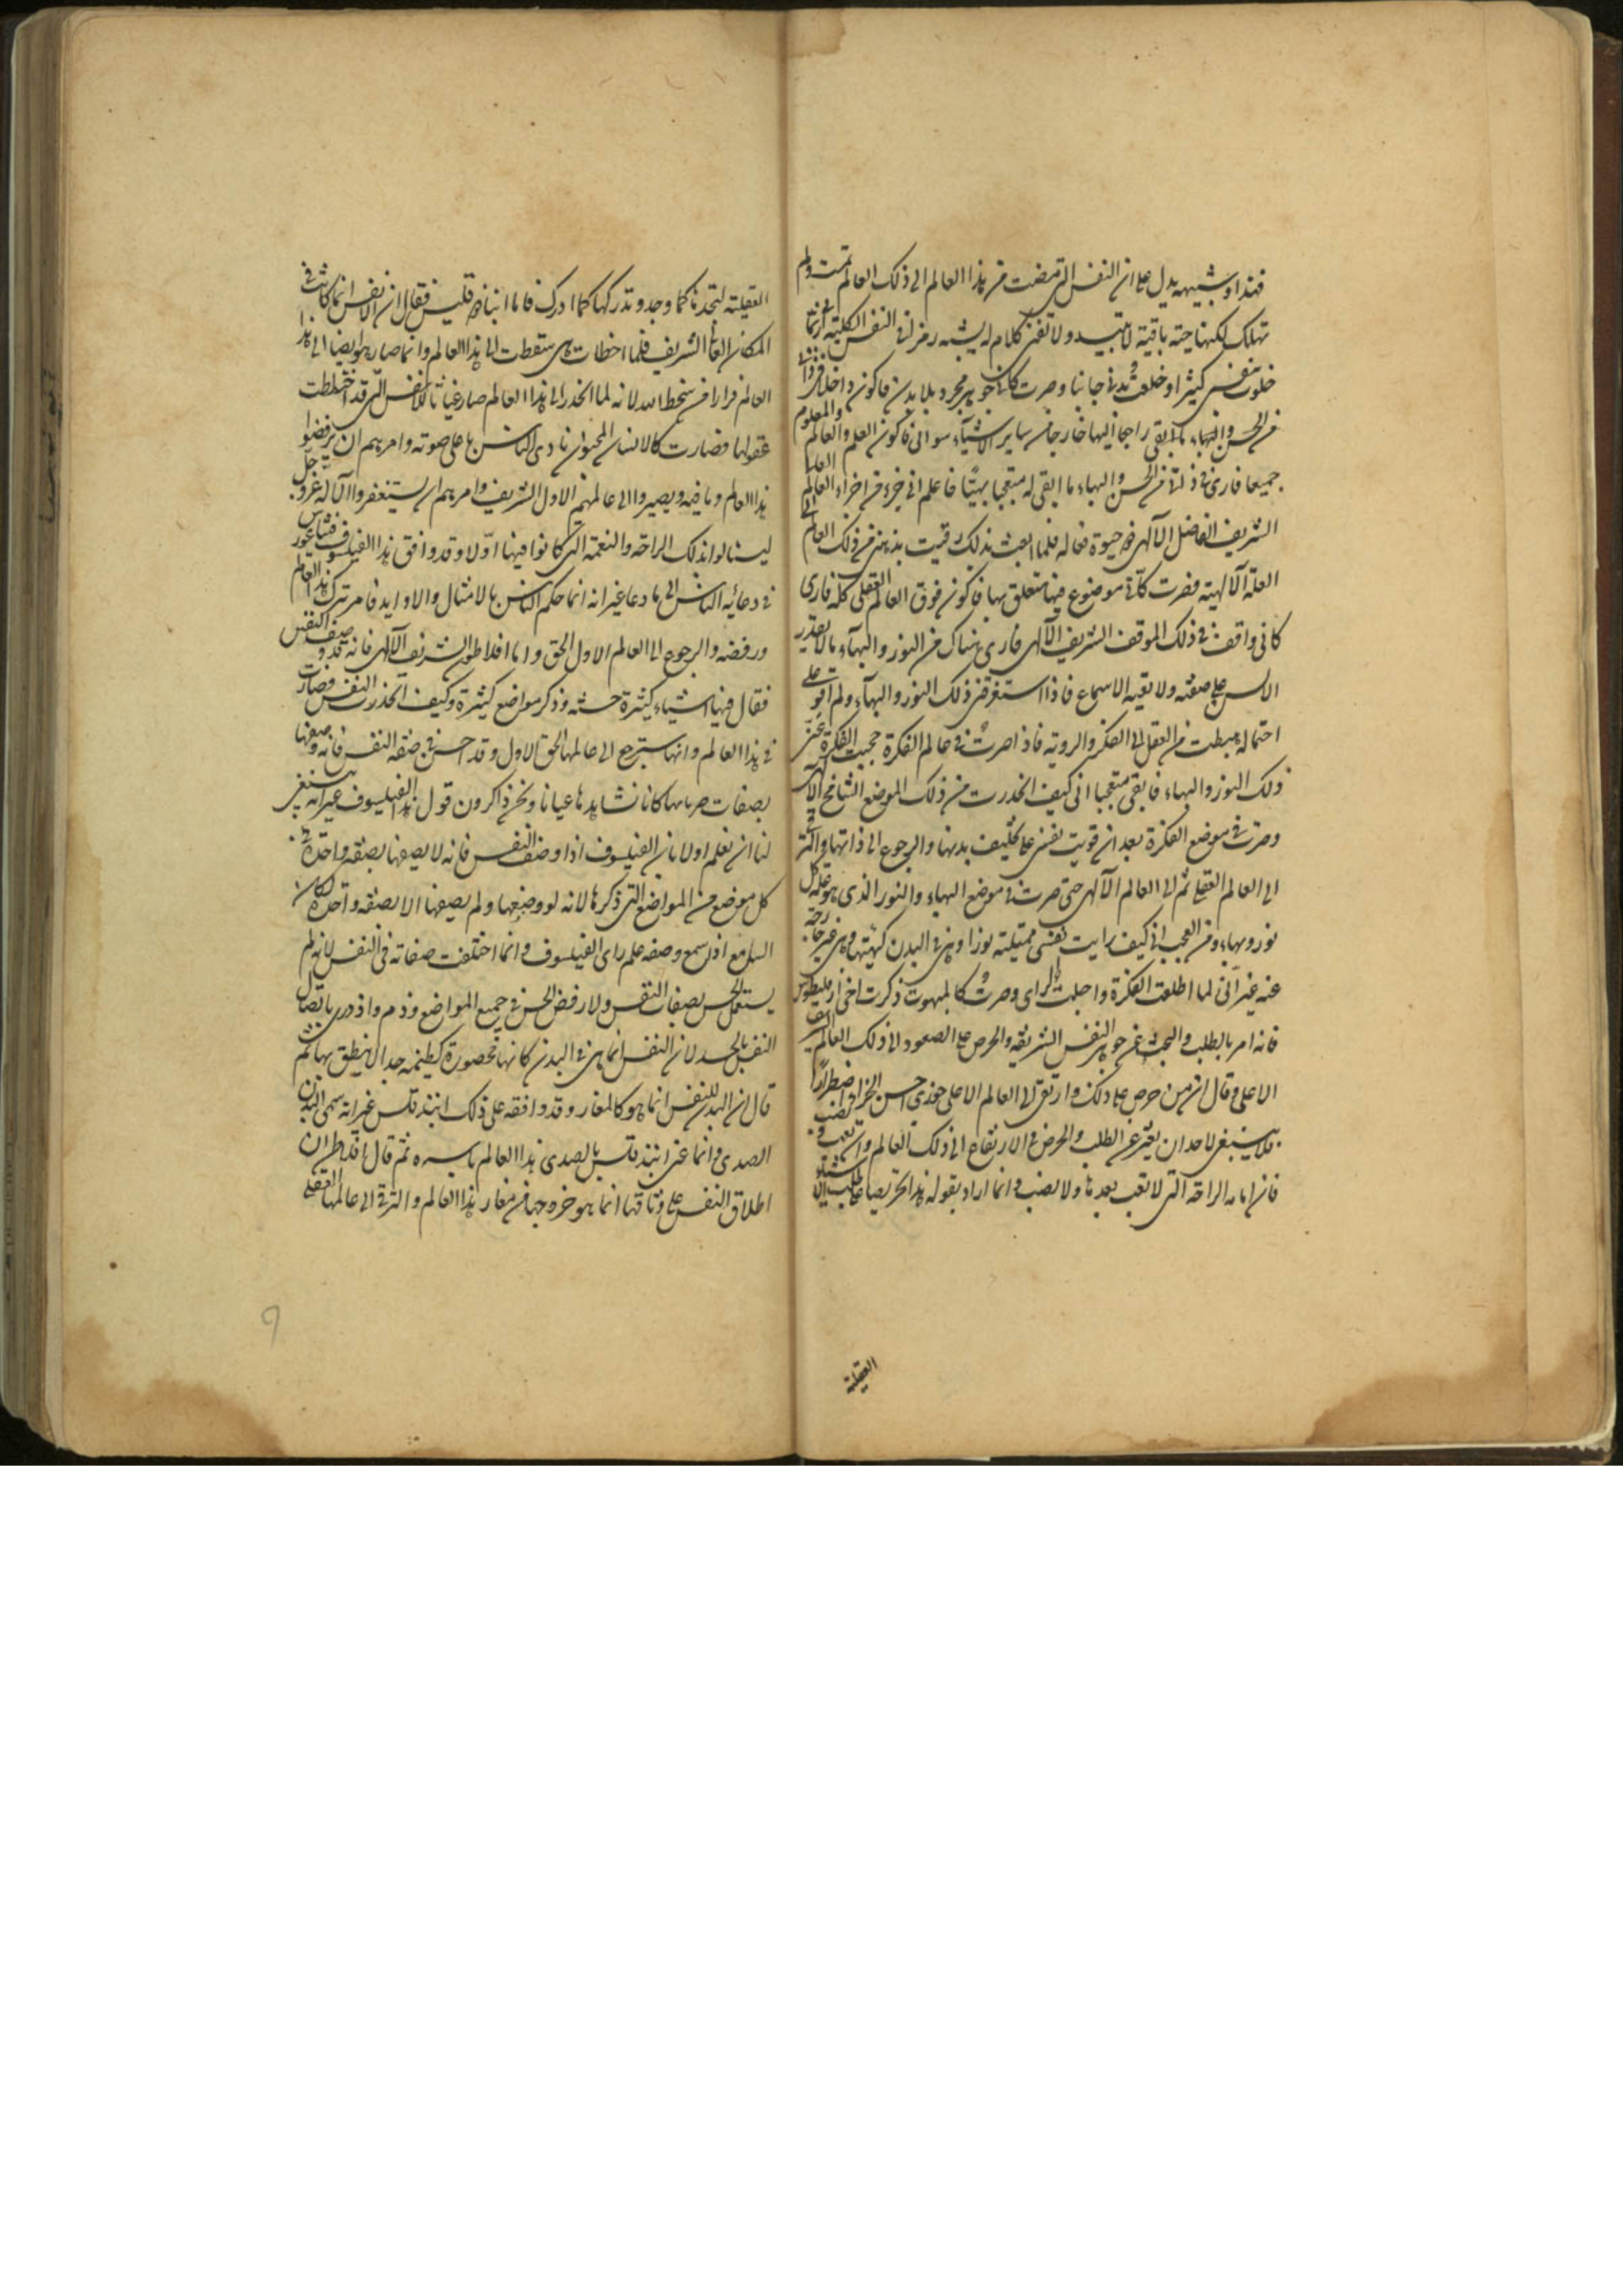 فهذا وشبيهه يدل على ان النفس التى مضت من هذا العالم الى ذلك العالم تمت ولم
تهلك لكنها حية باقية لا تبيد ولا تفنى كلام له يشبه رمز فى النفس الكلية انى ربما
خلوت بنفسى كثيرا وخلعت بدنى جانبا وصرت كانى جوهر مجرد بلا بدن فاكون داخلا فى ذاتى
من الحسن والبهاء ما ابقى راجعا اليها خارجا من ساير الاشياء سوائى فاكون العلم والعالم والمعلوم
جميعا فارى فى ذاتى من الحسن والبهاء ما ابقى له متعجبا بهتا فاعلم انى جزء من اجزاء العالم
الشريف الفاضل الآلهى ذو حيوة فعاله فلما ايقنت بذلك رقيت بذهنى من ذلك العالم الى
العلة الآلهية فصرت كانى موضوع فيها متعلق بها فاكون فوق العالم العقلى كله فارى
كانى واقف فى ذلك الموقف الشريف الآلهى فارى هناك من النور والبهاء ما لا تقدر
الالسن على صفته ولا تعيه الاسماع فاذا استغرقنى ذلك النور والبهاء ولم اقو على
احتماله هبطت من العقل الى الفكر والروية فاذا صرت فى عالم الفكرة حجبت الفكرة عنى
ذلك النور والبهاء فابقى متعجبا انى كيف انحدرت من ذلك الموضع الشامخ الآلهى
وصرت فى موضع الفكرة بعد ان قويت نفسى على تخليف بدنها والرجوع الى ذاتها والترقى
الى العالم العقلى ثم الى العالم الآلهى حتى صرت فى موضع البهاء والنور الذى هو علة كل
نور وبهاء ومن العجب انى كيف رايت نفسى ممتلئة نورا وهى فى البدن كهيئتها وهى غير خارجة
عنه غير انى لما اطلعت الفكرة واجلت الراى وصرت كالمبهوت ذكرت اخى ارقليطوس
فانه امر بالطلب والبحث عن جوهر النفس الشريفة والحرص على الصعود الى ذلك العالم الشريف
الاعلى وقال ان من حرص على ذلك وارتقى الى العالم الاعلى جوزى احسن الجزاء اضطرارا
فلا ينبغى لاحد ان يفتر عن الطلب والحرص فى الارتفاع الى ذلك العالم وان تعب ونصب
فان امامه الراحة التى لا تعب بعدها ولا نصب وانما اراد بقوله هذا تحريضا على طلب الاشياء
العقلية
العقلية لنجدها كما وجد وندركها كما ادرك فاما انباذقليس فقال ان الانفس انما كانت فى
المكان العالى الشريف فلما اخطات هى سقطت الى هذا العالم وانما صار هو ايضا الى هذا
العالم فرارا من سخط الله لانه لما انحدر الى هذا العالم صار غياثا للانفس التى قد اختلطت
عقولها فصارت كالانسان المجنون نادى الناس باعلى صوته وامرهم ان يرفضوا
هذا العالم وما فيه ويصيروا الى عالمهم الاول الشريف وامرهم ان يستغفروا الآلاله عزوجل
لينالوا بذلك الراحة والنعمة التى كانوا فيها اولا وقد وافق هذا الفيلسوف فيثاغورس
فى دعائه الناس الى ما دعا غير انه انما حكم الناس بالامثال والاوابد فامر بترك هذا العالم
ورفضه والرجوع الى العالم الاول الحق واما افلاطون الشريف الآلهى فانه قد وصف النفس
فقال فيها اشياء كثيرة حسنة وذكر مواضع كثيرة وكيف انحدرت النفس فصارت
فى هذا العالم وانها سترجع الى عالمها الحق الاول وقد احسن فى صفة النفس فانه وصفها
بصفات صرنا بها كانا نشاهدها عيانا ونحن ذاكرون قول هذا الفيلسوف غير انه ينبغى
لنا ان نعلم اولا بان الفيلسوف اذا وصف النفس فانه لا يصفها بصفة واحدة فى
كل موضع من المواضع التى ذكرها لانه لو وصفها ولم يصفها الا بصفة واحدة لكان
السامع اذا سمع وصفه علم راى الفيلسوف وانما اختلفت صفاته فى النفس لانه لم
يستعمل الحس بصفات النفس ولا رفض الحس فى جميع المواضع وذم وازدرى باتصال
النفس بالجسد لان النفس انما هى فى البدن كانها محصورة كظيمة جدا لا نطق بها ثم
قال ان البدن للنفس انما هو كالمغار وقد وافقه على ذلك انبذقلس غير انه سمى البدن
الصدى وانما عنى انبذقلس بالصدى هذا العالم باسره ثم قال افلاطون ان
اطلاق النفس على وثاقها انما هو خروجها من مغار هذا العالم والترقى الى عالمها العقلى